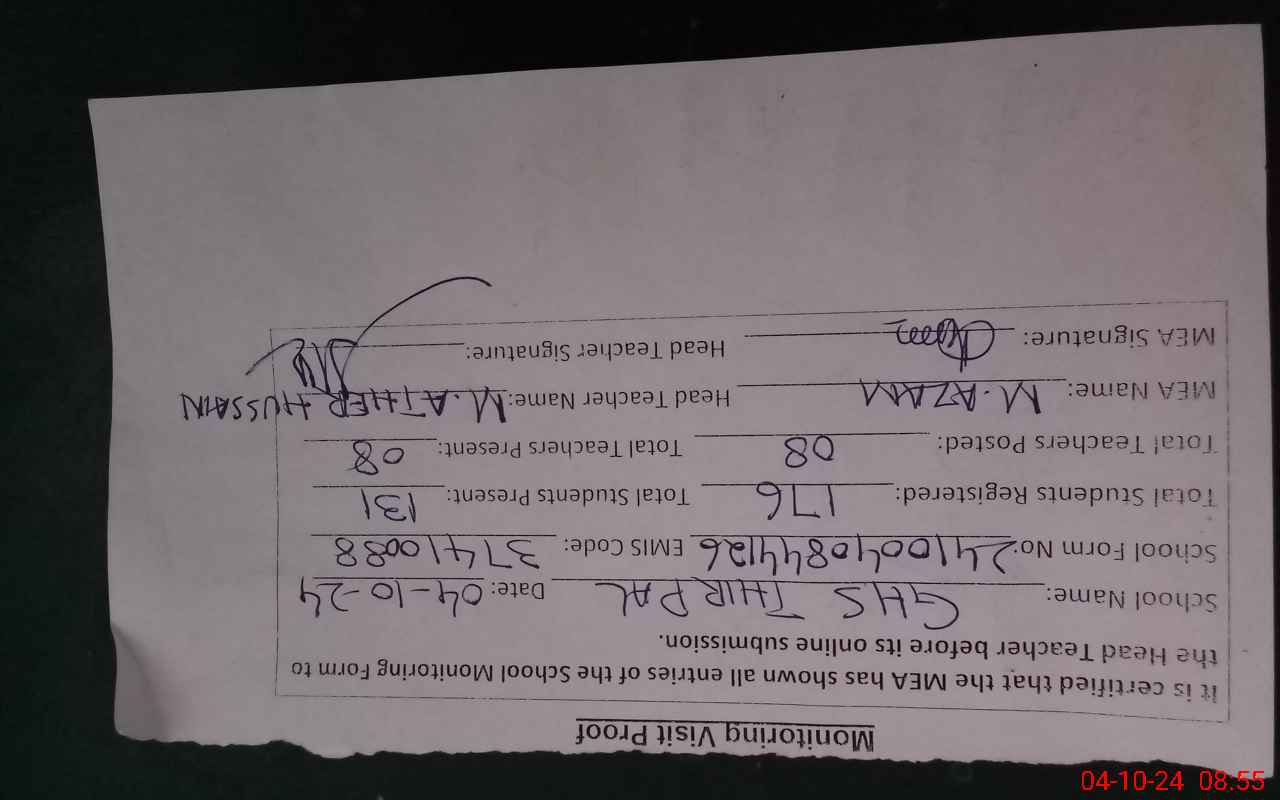 Monitoring Visit Proof
It is certified that the MEA has shown all entries of the School Monitoring Form to
the Head Teacher before its online submission.
School Name: GHS THIRPAL Date: 04-10-24
School Form No: 241004084426 EMIS Code: 37410088
Total Students Registered: 176 Total Students Present: 131
Total Teachers Posted: 08 Total Teachers Present: 08
MEA Name: M. AZAM Head Teacher Name: M. ATHER HUSSAIN
MEA Signature: Head Teacher Signature:
04-10-24 08:55